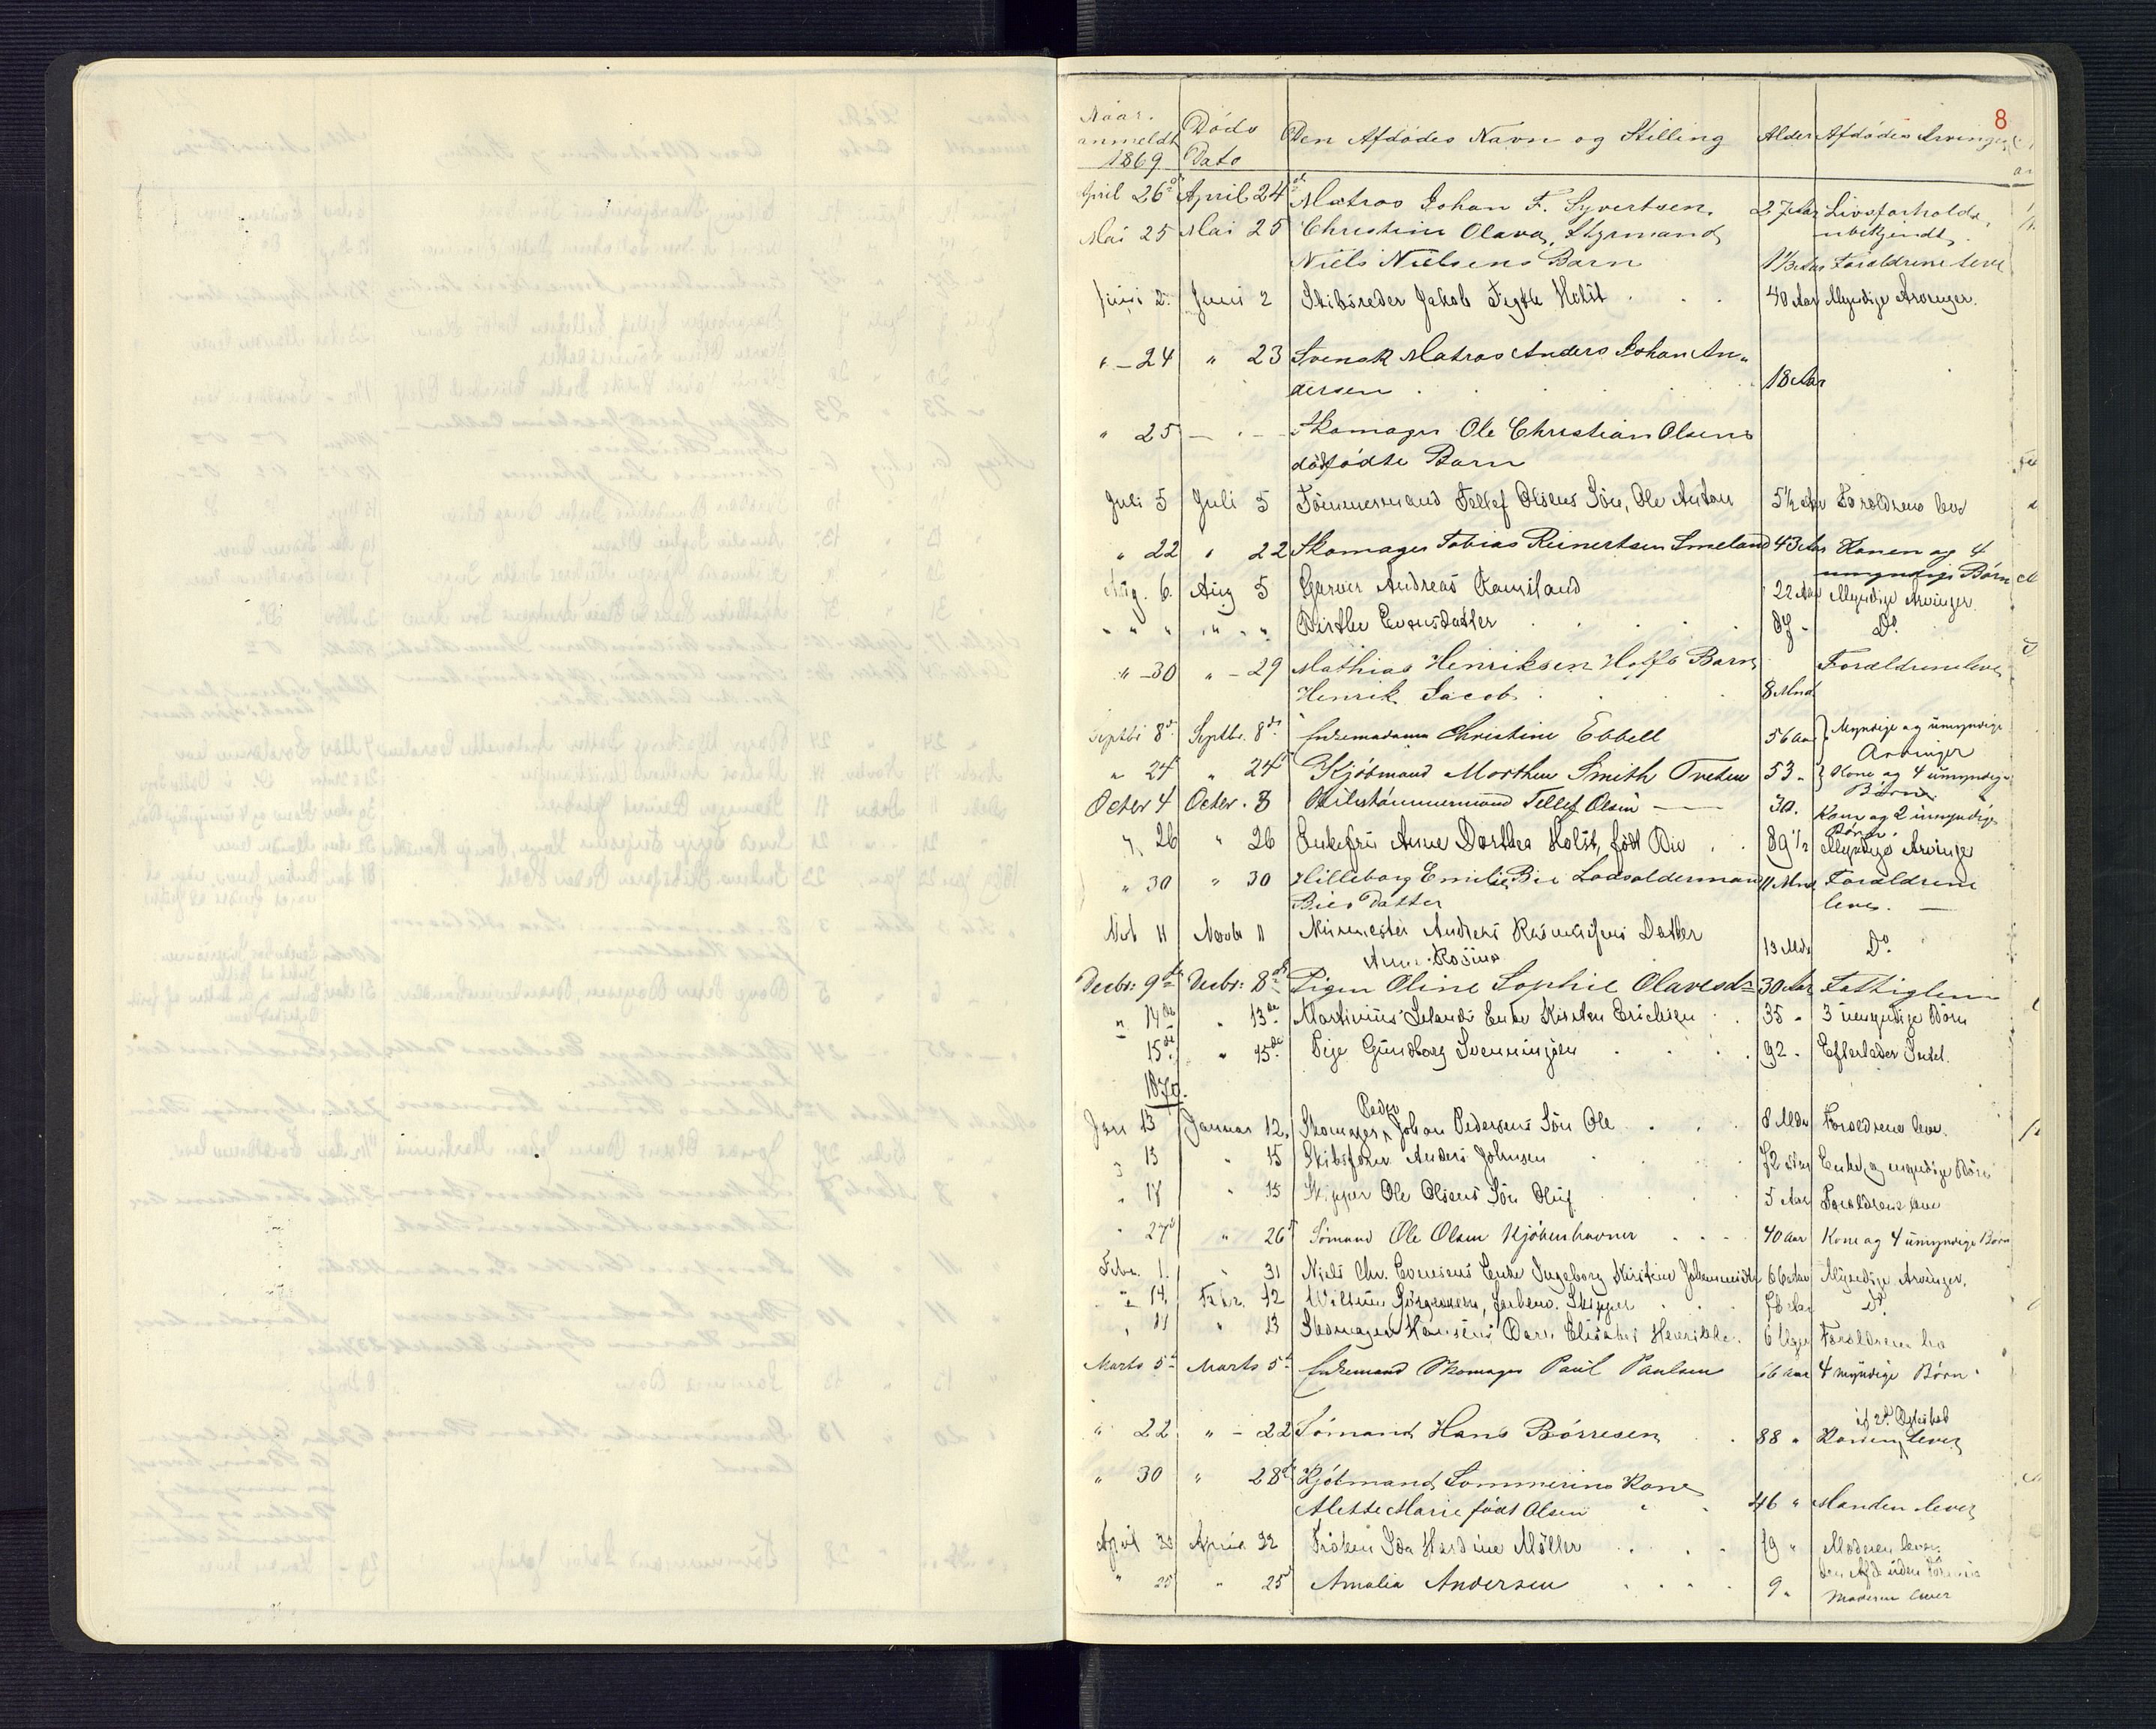 8
Naar anmeldt 1869 Döds Dato Den Afdödes Navn og Stilling Alder Afdödes Arvinger
April 26d April 24d Matros Johan F. Syvertsen. 27 Aar Livsforholde
ubekjendt.
Mai 25 Mai 25 Christine Olava, Styrmand
Niels Nielsens Barn 1 1/3 Aar Forældrene leve
Juni 2. Juni 2 Skibsreder Jakob Holst 40 Aar Myndige Arvinger.
" - 24 " 23 Svensk Matros Anders Johan An-
dersen 18 Aar
" 25 — " — Skomager Ole Christian Olsens
dödfödte Barn
Juli 5 Juli 5 Tömmermand Tellef Olsens Sön, Ole Anton 5 1/2 Aar Forældrene leve
" 22 " 22 Skomager Tobias Reinertsen Smeland 43 Aar Konen og 4
umyndige Börn
Aug. 6. Aug 5 Garver Andreas 22 Aar Myndige Arvinger
" " " " " " Birthe Evensdatter Do.
" - 30 " - 29 Mathias Henriksen Holfs Barn Forældrene leve
Henrik Jacob 8 Mnd
Septbr 8d. Septbr. 8de. Enkemadame Christine Ebbell 56 Aar } Myndige og umyndige
Arvinger
" 24 " 24 Kjöbmand Morthen Smith Treten 53 - } Kone og 4 umyndige
Börn
Octbr 4 Octbr. 3 Skibstömmermand Tellef Olsen — 30. Kone og 2 umyndige
Börn.
" 26 " 26 Enkefru Anne Dorthea Holst, födt Bie 89 1/2 Myndige Arvinge
" 30 " 30 Hilleborg Emilie Bie Lodsoldermand 11 Mnd Forældrene
Bies Datter leve. —
Novb 11 Novbr 11 Muurmester Andreas Rasmussens Datter
Anne Rosine 13 Mdr Do.
Decbr: 9de Decbr: 8de Pigen Oline Sophie Olavesdr 30 Aar Fattiglem
" 14de " 13de Martinius Enke Kirsten Erichsen 35 - 3 umyndige Börn
15de " 15de Pige Gundborg Svenningsen 92 - Efterlader Intet.
1870.
Jan 13 Januar 12. Skomager Peder Johan Pedersens Sön Ole 8 Mdr Forældrene leve.
" 13 " 15 Skibsförer Anders Johnsen 72 Aar Enke og myndige Börn
" 17 " 15 Skipper Ole Olsens Sön Oluf 5 Aar Forældrene leve
" 27d " 26d Sömand Ole Olsen Kjöbenhavner 40 Aar Kone og 4 umyndige Börn
Febr. 1. " 31 Niels Chr. Evensens Enke Ingeborg Kirstine 66 Aar Myndige Arvinger.
" 14. Febr. 12 Skipper 78 Aar Do.
" " " 13 Skomager Hansens Barn Elisabet 6 Uger Forældrene leve
Marts 5d Marts 5d Enkemand Skomager Paul Paulsen 66 Aar 4 myndige Börn.
" 22 " - 22 Sömand Hans Börresen 88 " Konen af 2d Ægteskab lever
" 30 " 28de Kjöbmand Sommerins Kone
Alette Marie födt Olsen 46 " Manden lever
April 23 April 22 Fröken Ida Hardine Möller 19 " Moderen lever.
" 25 " 25d Amalia Andersen 9 "
Moderen lever